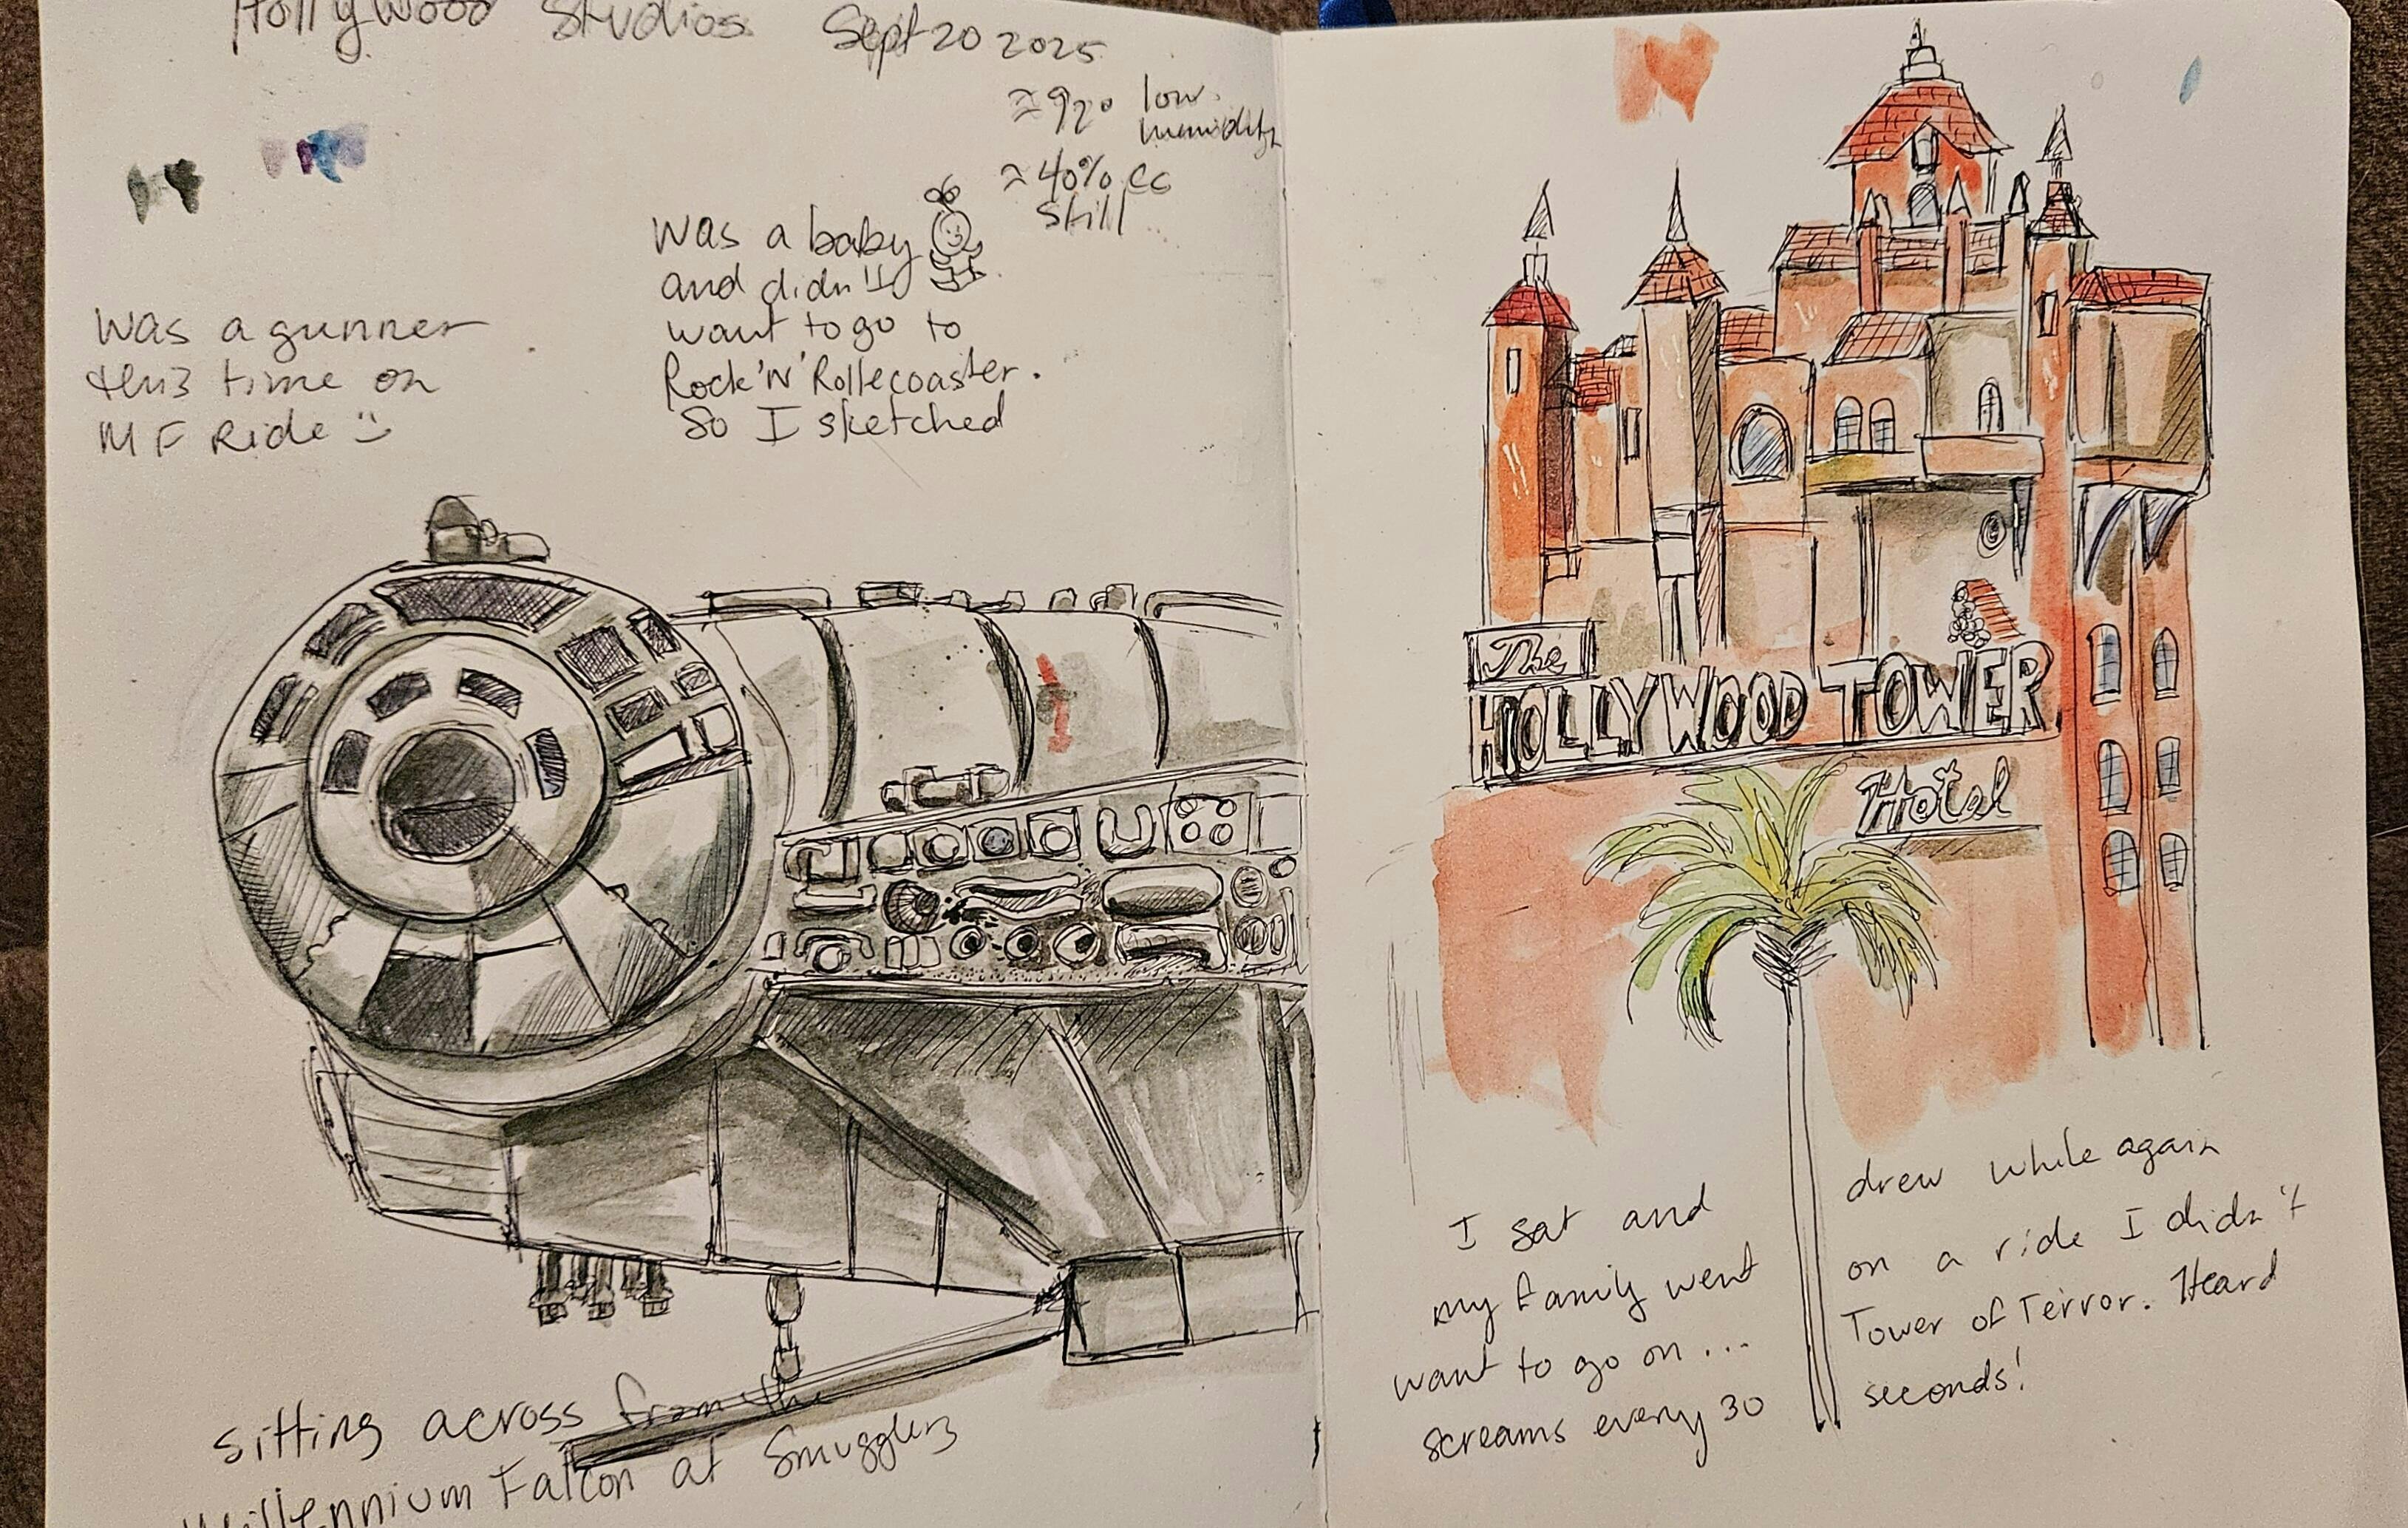 Hollywood Studios Sept 20 2025
≈92° low
humidity
≈40% cc
still
was a baby
and didn't
want to go to
Rock'N'Rollecoaster.
So I sketched
Was a gunner
this time on
MF Ride
sitting across from the
Millennium Falcon at Smugglers
The
HOLLYWOOD TOWER
Hotel
I sat and drew while again
my family went on a ride I didn't
want to go on... Tower of Terror. Heard
screams every 30 seconds!